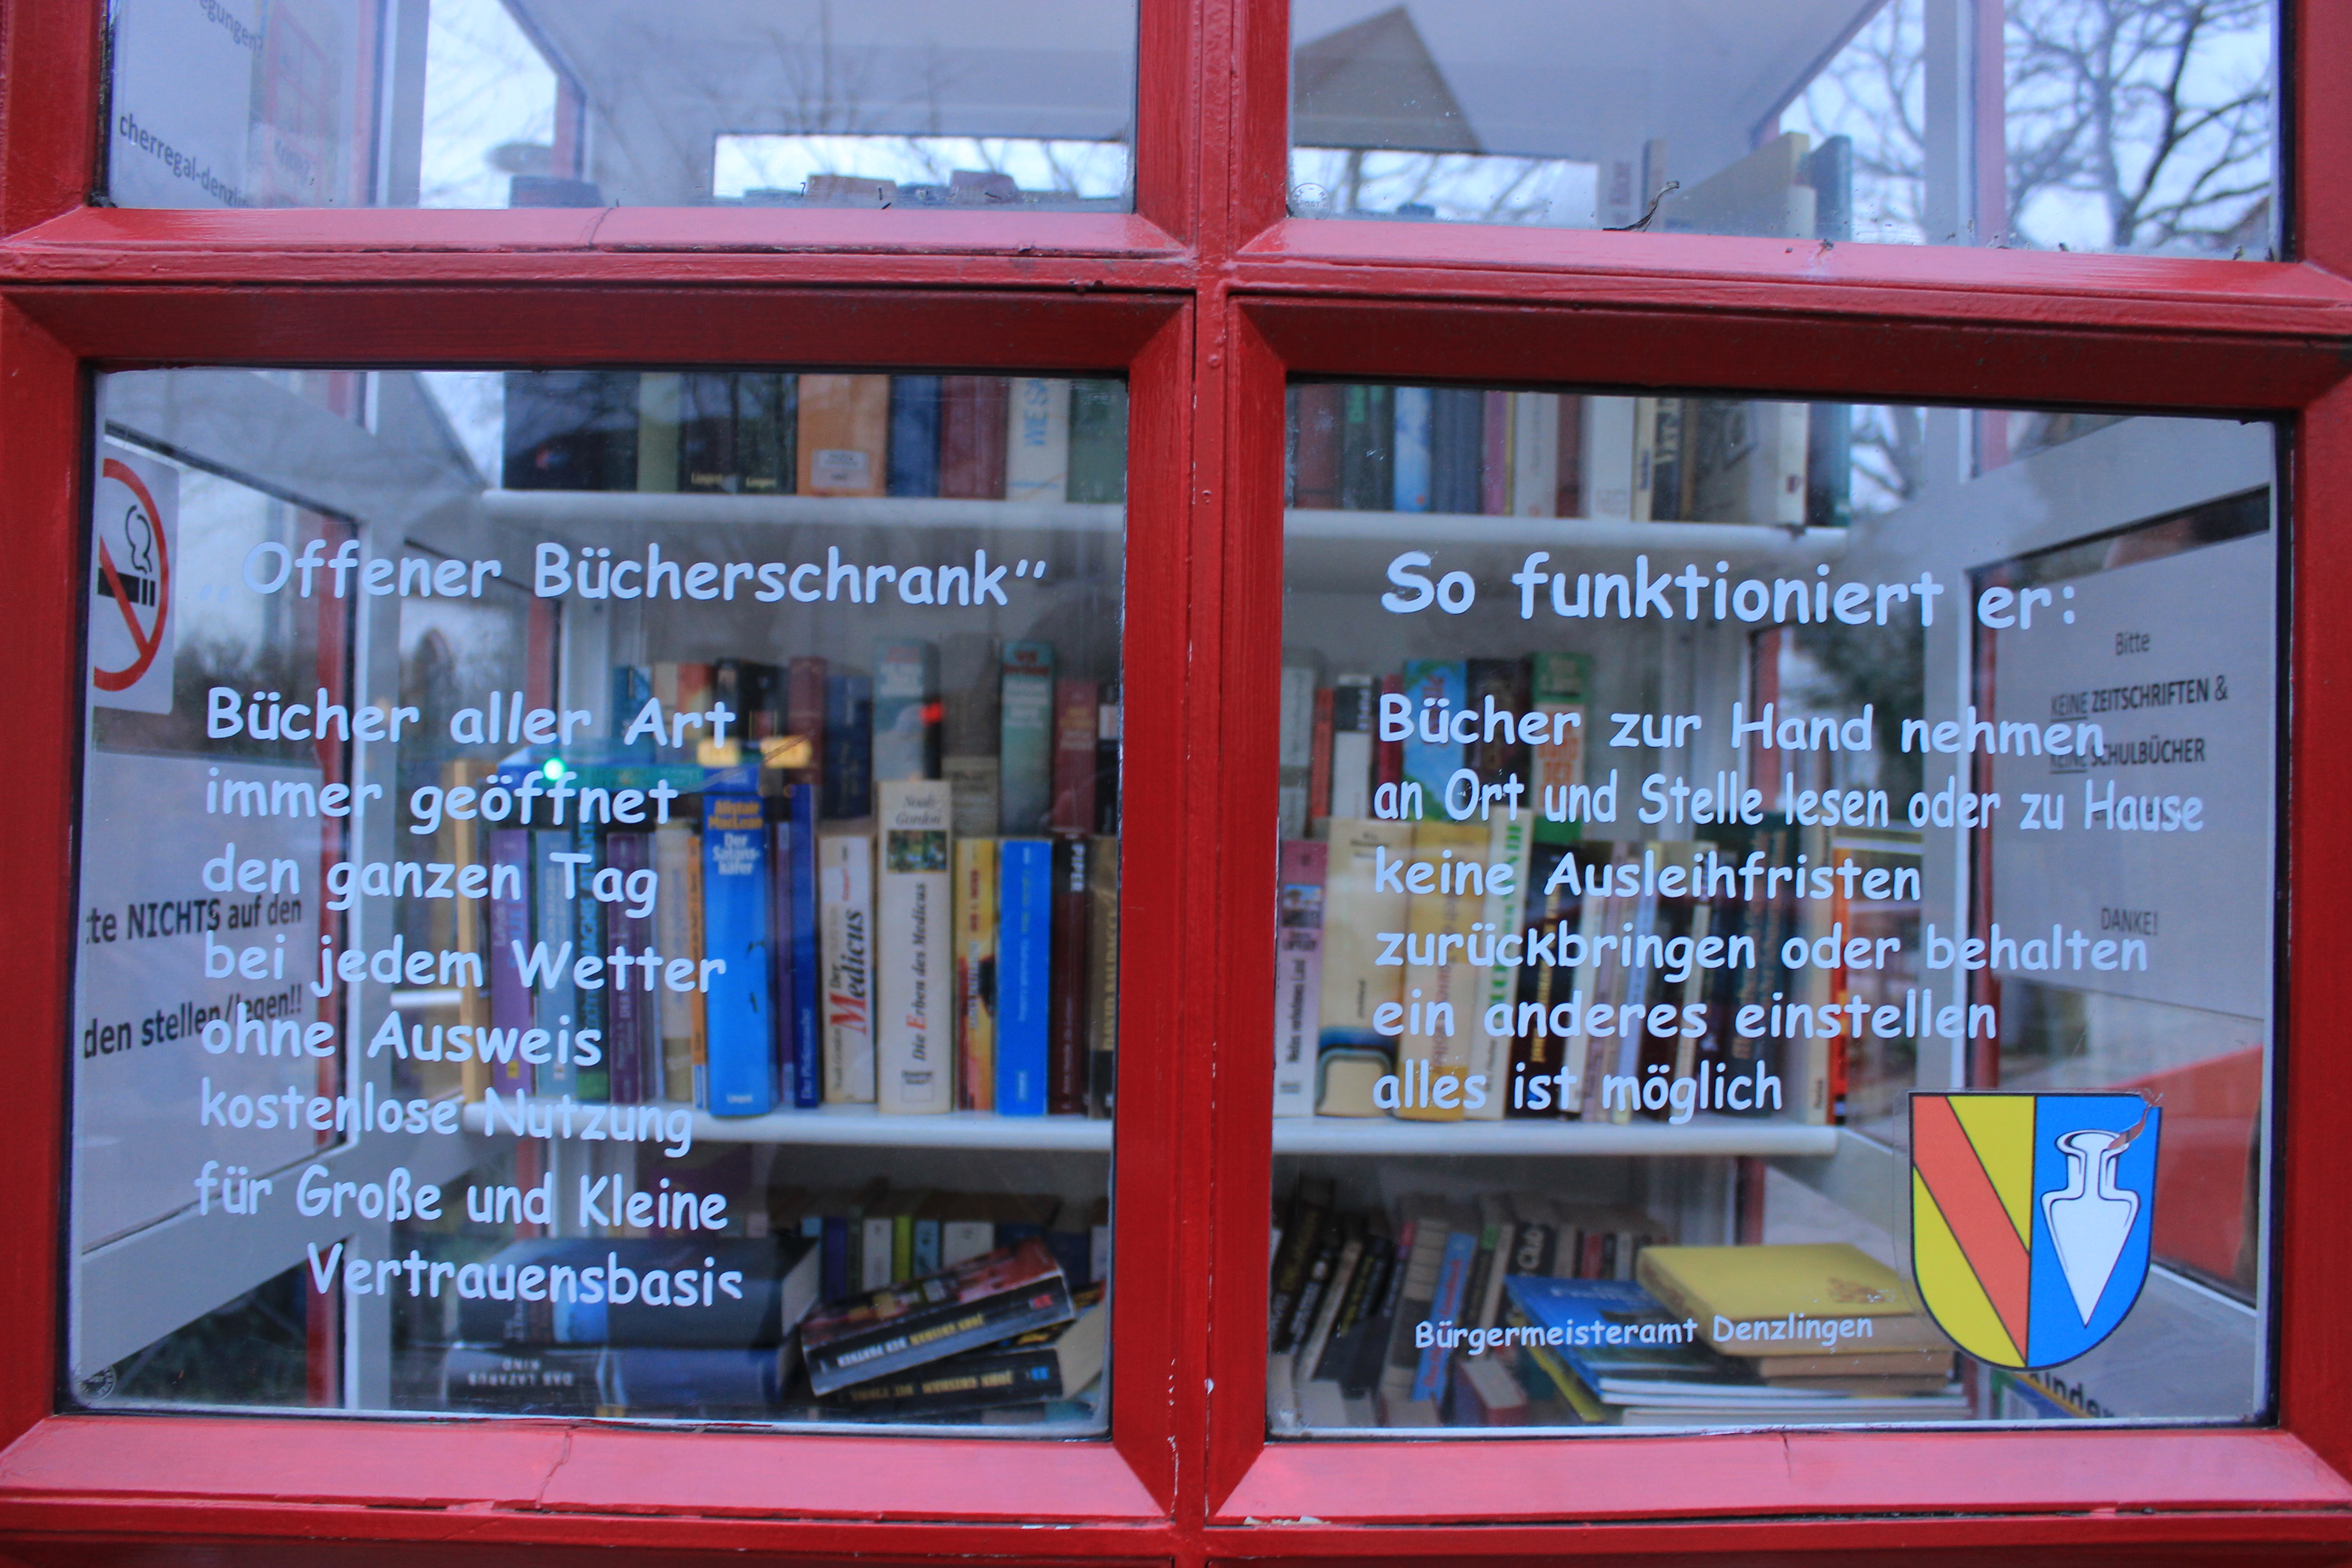 egungen?
cherregal-denzlin
„Offener Bücherschrank"
Bücher aller Art
immer geöffnet
den ganzen Tag
bei jedem Wetter
ohne Ausweis
kostenlose Nutzung
für Große und Kleine
Vertrauensbasis
So funktioniert er:
Bücher zur Hand nehmen
an Ort und Stelle lesen oder zu Hause
keine Ausleihfristen
zurückbringen oder behalten
ein anderes einstellen
alles ist möglich
Bürgermeisteramt Denzlingen
tte NICHTS auf den
den stellen/legen!!
Bitte
KEINE ZEITSCHRIFTEN &
KEINE SCHULBÜCHER
DANKE!
Alistair
MacLean
Der
Satans-
käfer
Der
Medicus
Noah
Gordon
Die Erben des Medicus
PIPER
DAVID BALDACCI
DAS LAZARUS
KIND
JOHN GRISHAM DER PARTNER
JOHN GRISHAM DIE FIRMA